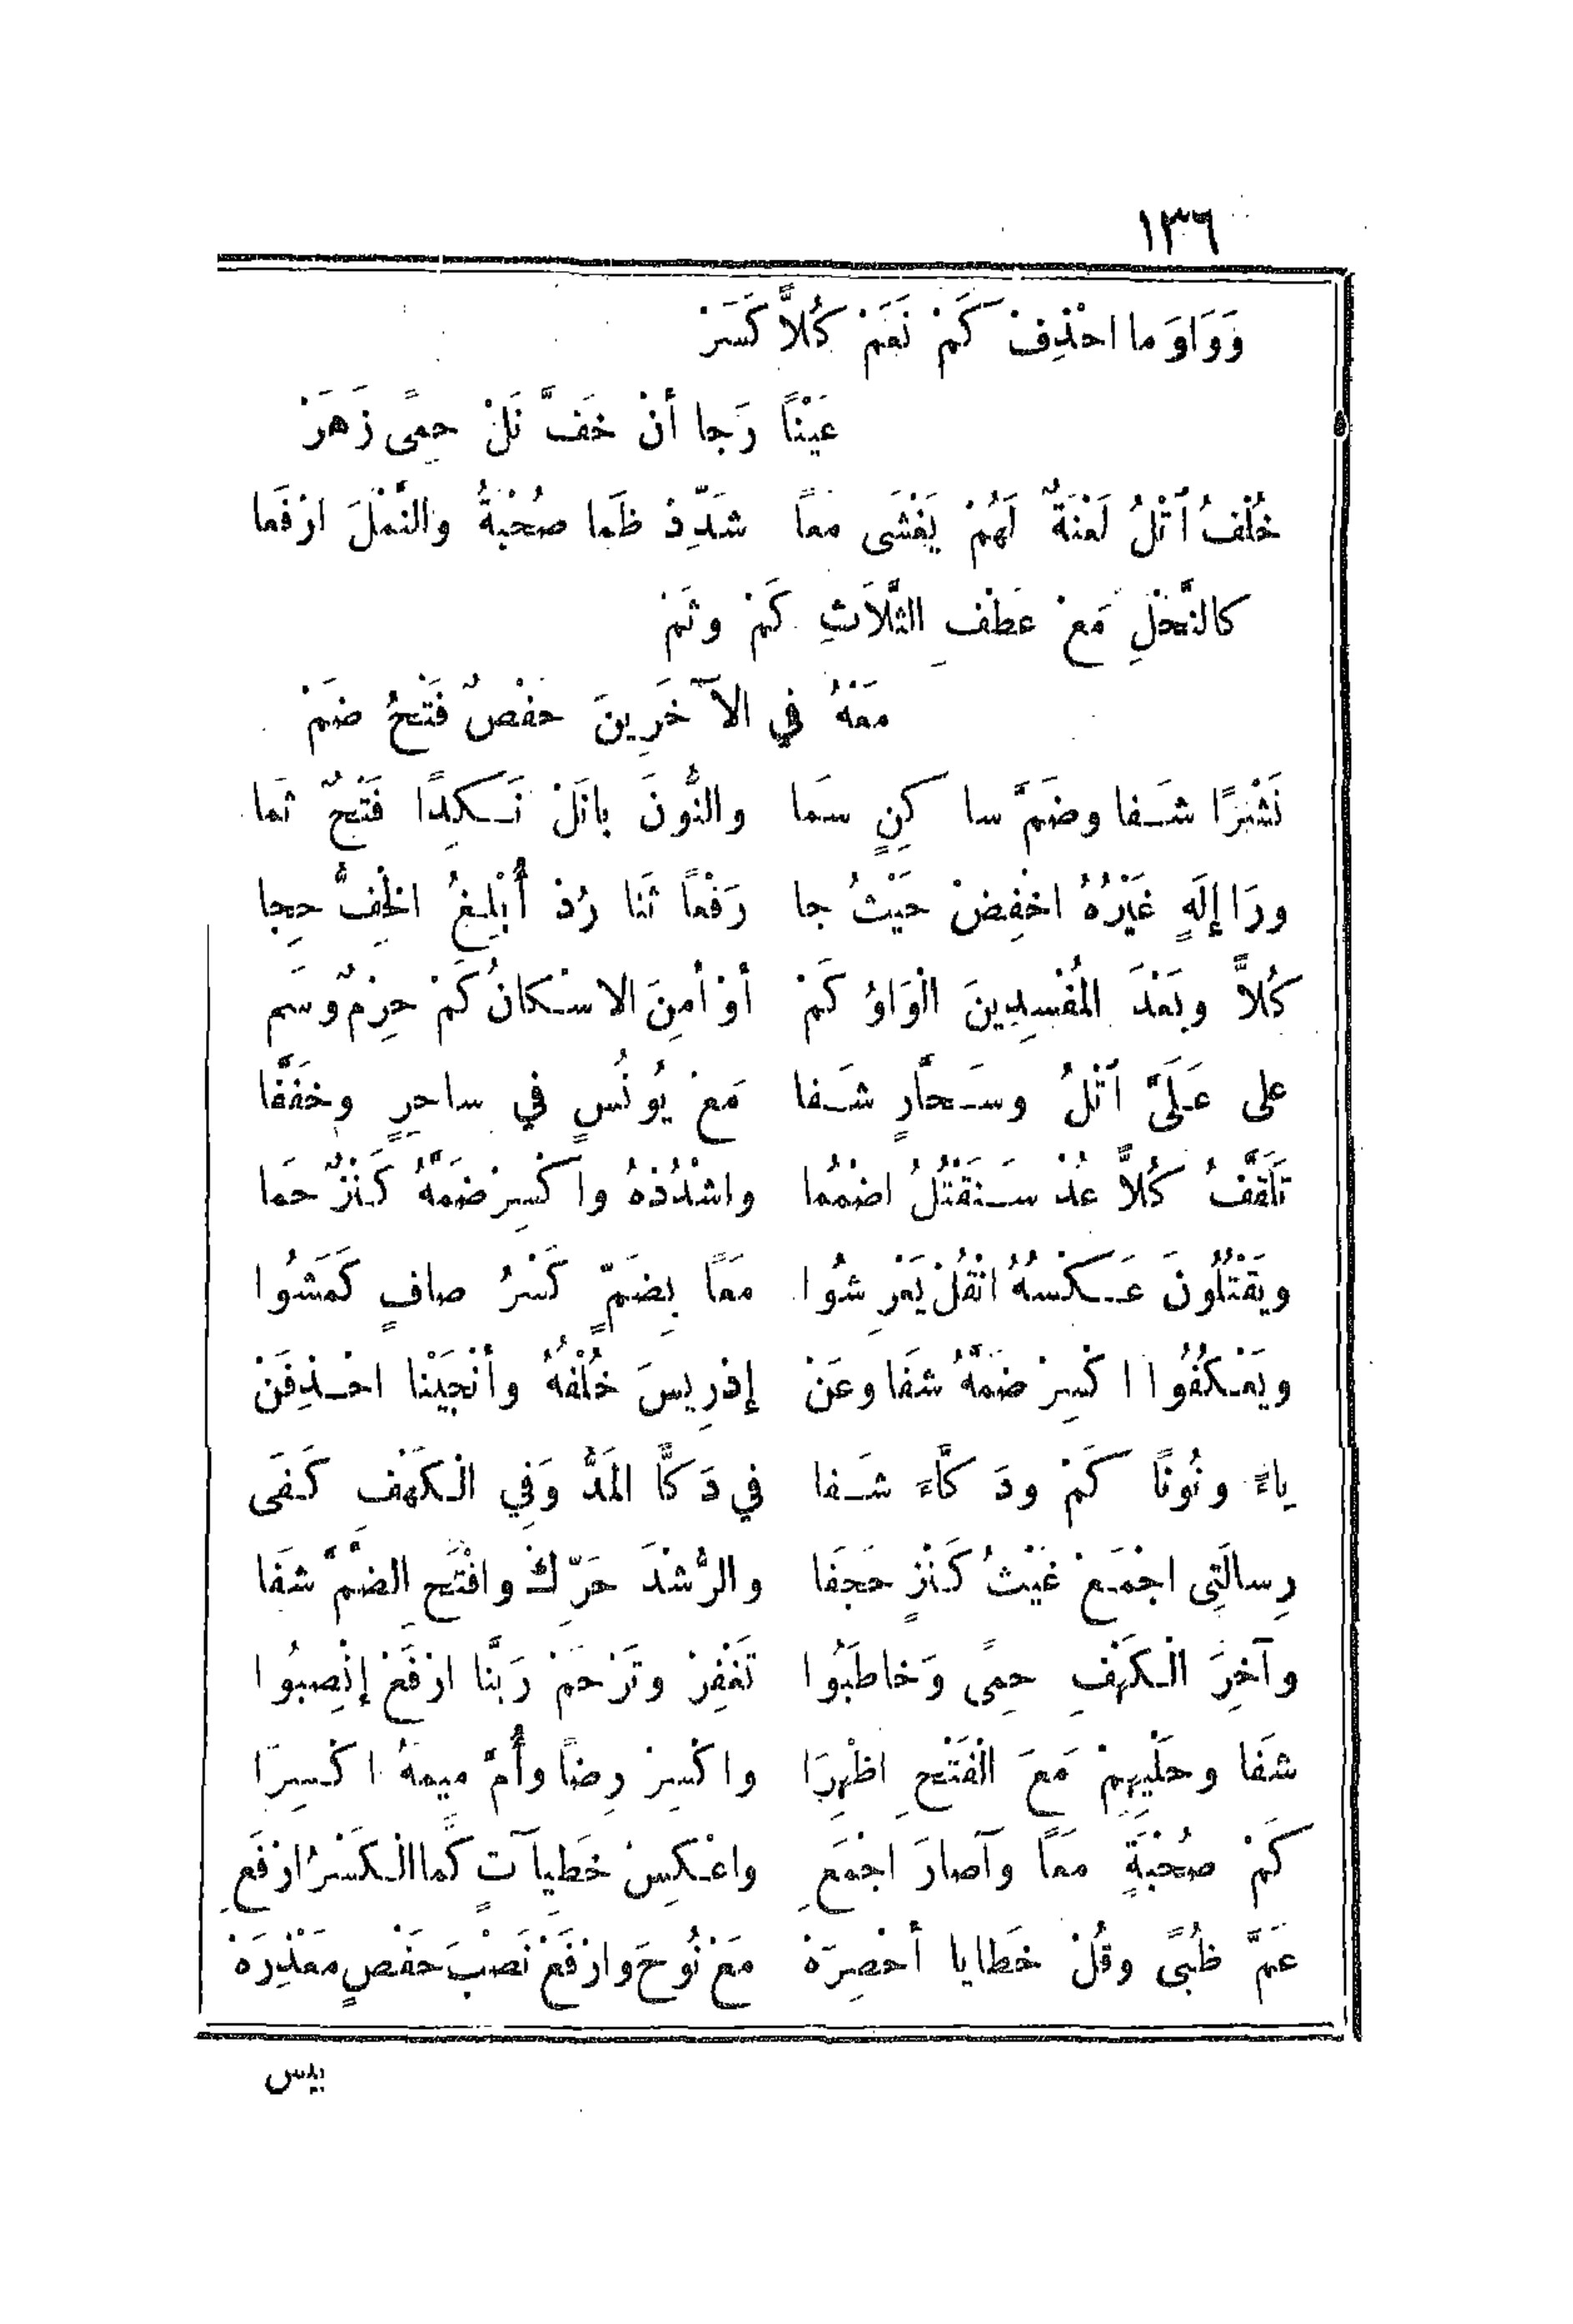 ١٣٦
وَوَاوَ ما احْذِفْ كَمْ نَعَمْ كُلاًّ كَسَرْ
عَيْنًا رَجا أنْ خَفَّ نَلْ حِمًى زَهَرْ
خُلْفُ اُتْلُ لَعْنَةٌ لَهُمْ يَغْشَى مَعاً شَدِّدْ ظَما صُحْبَةٌ والنَّحْلَ ارْفَعا
كالنَّحْلِ مَعْ عَطْفِ الثَّلاَثِ كَمْ وثَمْ
مَعْهُ في الآخَرِينَ حَفْصٌ فَتْحُ ضَمْ
نَشْرًا شَفا وضَمَّ ساكِنٍ سَما والنُّونَ بانَلْ نَكِدًا فَتْحٌ ثَما
ورَا إلَهٍ غَيْرُهُ اخْفِضْ حَيْثُ جا رَفْعاً ثَنا رُدْ أُبْلِغُ الخِفُّ حِجا
كُلاًّ وبَعْدَ المُفْسِدِينَ الْوَاوُ كَمْ أوْ أمِنَ الاسْكانُ كَمْ حِرْمٌ وسَم
على عَلَىَّ اُتْلُ وسَحَّارٍ شَفا مَعْ يُونُسٍ في ساحِرٍ وخَفَّفَا
تَلَقَّفُ كُلاًّ عُدْ سَنَقْتُلُ اضْمُما واشْدُدْهُ واكْسِرْ ضَمَّهُ كَنْزٌ حَمَا
ويَقْتُلُونَ عَكْسُهُ انْقُلْ يَعْرِشُوا مَعًا بِضَمٍّ كَسْرُ صافٍ كَمَشُوا
ويَعْكُفُوا اكْسِرْ ضَمَّهُ شَفَا وعَنْ إدْرِيسَ خُلْفُهُ وأنْجَيْنَا احْذِفَنْ
ياءً ونُونًا كَمْ ودَكَّاءَ شَفا في دَكًّا المَدُّ وَفِي الْكَهْفِ كَفَى
رِسالَتِى اجْمَعْ غَيْثُ كَنْزٍ حَجَفَا والرُّشْدَ حَرِّكْ وافْتَحِ الضَّمَّ شَفَا
وآخِرَ الْكَهْفِ حِمًى وَخاطَبُوا تَغْفِرْ وتَرْحَمْ رَبَّنَا ارْفَعْ إنْصِبُوا
شَفَا وحَلْيِهِمْ مَعَ الْفَتْحِ اظْهِرَا واكْسِرْ رِضاً وأُمَّ مِيمَهُ اكْسِرَا
كَمْ صُحْبَةٍ مَعًا وآصارَ اجْمَعِ واعْكِسْ خَطِيآتٍ كَما الْكَسْرُ ارْفَعِ
عَمَّ ظُبًى وقُلْ خَطايا أحْصِرَهْ مَعْ نُوحَ وارْفَعْ نَصْبَ حَفْصٍ مَعْذِرَهْ
بيس